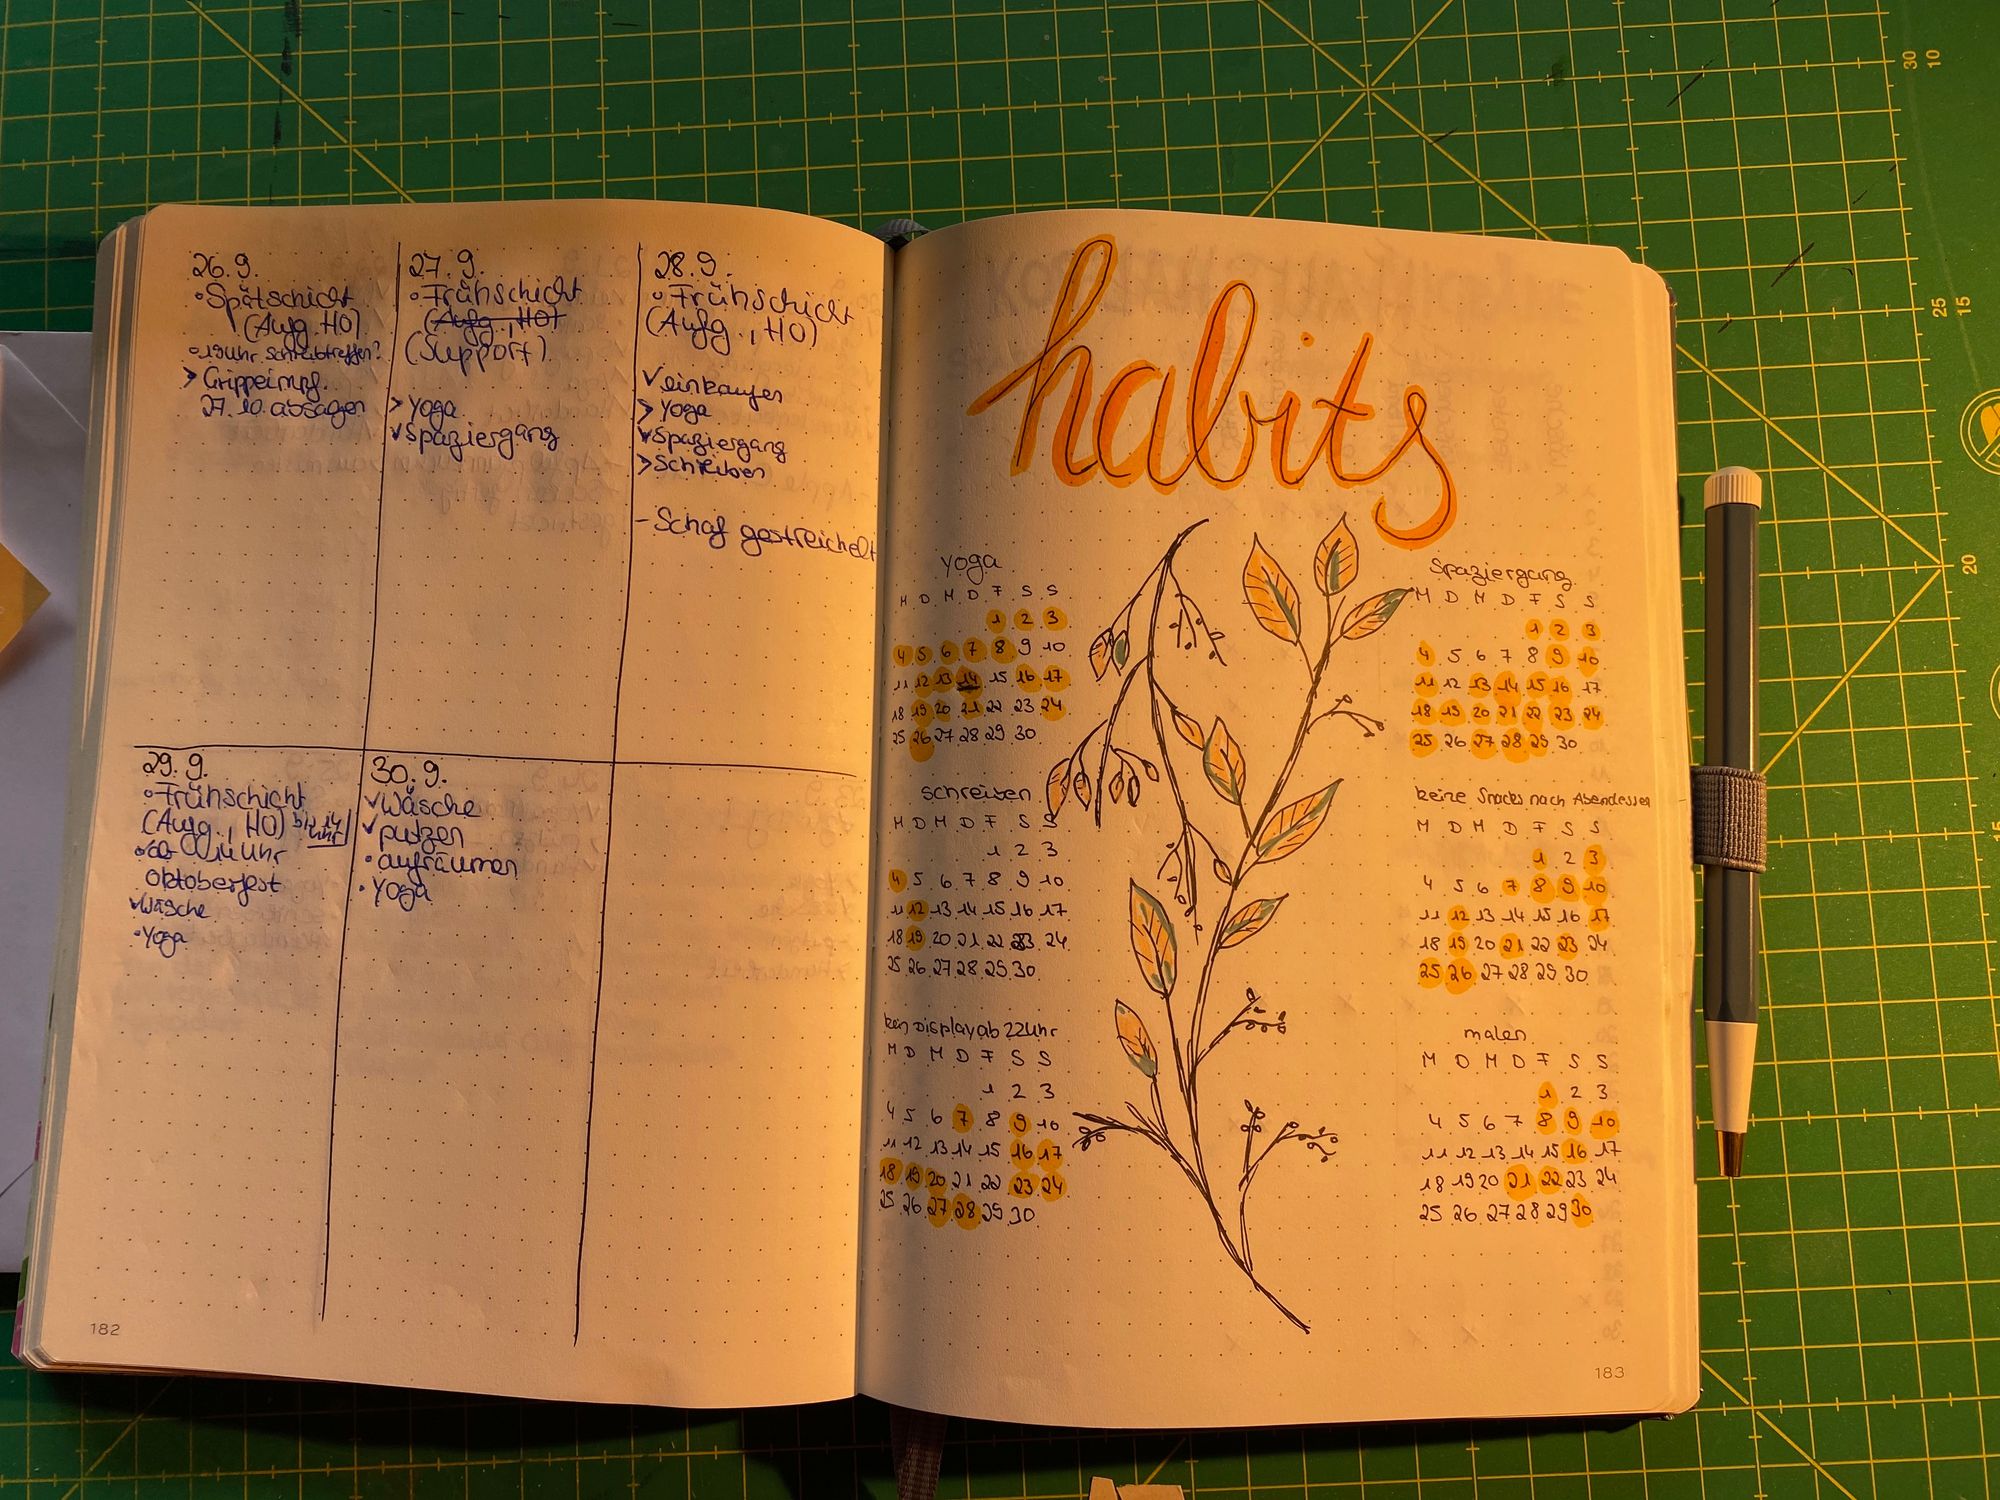 26.9.
• Spätschicht
(Aufg. HO)
• 19 Uhr Schreibtreffen?
> Grippeimpf.
27.10. absagen
27.9.
• Frühschicht
(Aufg., HO)
(Support)
> Yoga
✓ Spaziergang
28.9.
• Frühschicht
(Aufg., HO)
✓ einkaufen
> Yoga
✓ Spaziergang
> Schreiben
- Schaf gestreichelt
29.9.
• Frühschicht
(Aufg., HO) bis 14 Uhr
• ab 14 Uhr
Oktoberfest
✓ Wäsche
• Yoga
30.9.
✓ Wäsche
✓ putzen
• aufräumen
• Yoga
182
habits
yoga
M D M D F S S
1 2 3
4 5 6 7 8 9 10
11 12 13 14 15 16 17
18 19 20 21 22 23 24
25 26 27 28 29 30
schreiben
M D M D F S S
1 2 3
4 5 6 7 8 9 10
11 12 13 14 15 16 17
18 19 20 21 22 23 24
25 26 27 28 29 30
kein Display ab 22 Uhr
M D M D F S S
1 2 3
4 5 6 7 8 9 10
11 12 13 14 15 16 17
18 19 20 21 22 23 24
25 26 27 28 29 30
Spaziergang
M D M D F S S
1 2 3
4 5 6 7 8 9 10
11 12 13 14 15 16 17
18 19 20 21 22 23 24
25 26 27 28 29 30
keine Snacks nach Abendessen
M D M D F S S
1 2 3
4 5 6 7 8 9 10
11 12 13 14 15 16 17
18 19 20 21 22 23 24
25 26 27 28 29 30
malen
M D M D F S S
1 2 3
4 5 6 7 8 9 10
11 12 13 14 15 16 17
18 19 20 21 22 23 24
25 26 27 28 29 30
183
30 10
25 15
20
15